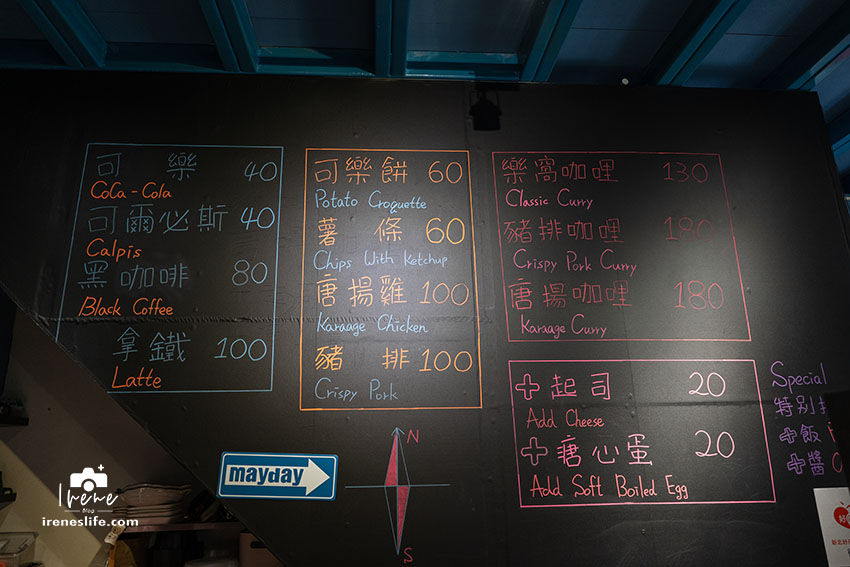 可樂 40
CoCa-Cola
可爾必斯 40
Calpis
黑咖啡 80
Black Coffee
拿鐵 100
Latte
可樂餅 60
Potato Croquette
薯條 60
Chips With Ketchup
唐揚雞 100
Karaage Chicken
豬排 100
Crispy Pork
樂窩咖哩 130
Classic Curry
豬排咖哩 180
Crispy Pork Curry
唐揚咖哩 180
Karaage Curry
+起司 20
Add Cheese
+糖心蛋 20
Add Soft Boiled Egg
Special
特別
+飯
+醬
mayday
N
S
Irene
Blog
ireneslife.com